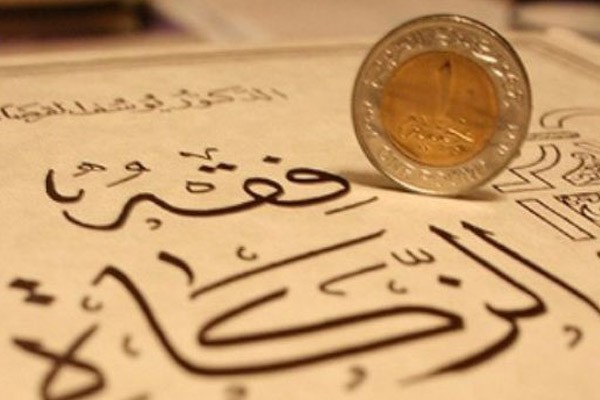 الدكتور يوسف القرضاوي
١
جنيه
فِقْهُ
الزَّكَاة